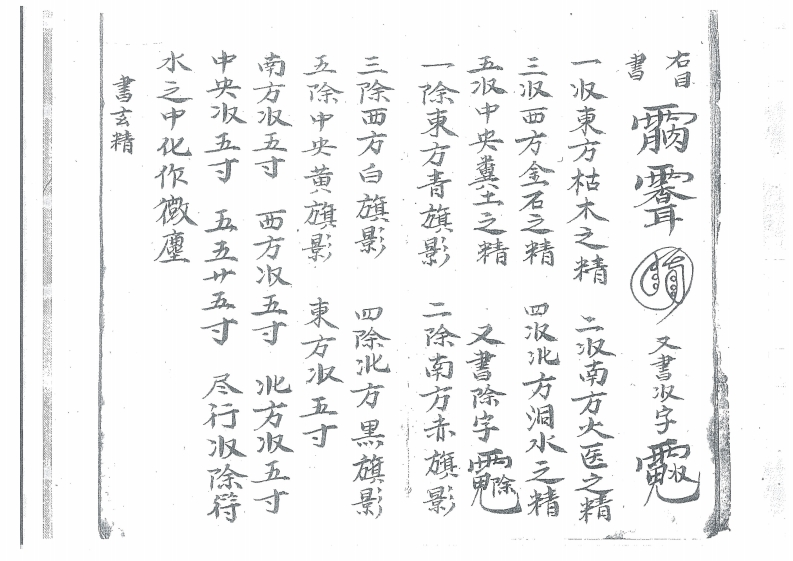 右目書 又書収字
一収東方枯木之精 二収南方火医之精
三収西方金石之精 四収北方洞水之精
五収中央糞土之精 又書除字
一除東方青旗影 二除南方赤旗影
三除西方白旗影 四除北方黒旗影
五除中央黄旗影 東方収五寸
南方収五寸 西方収五寸 北方収五寸
中央収五寸 五五廿五寸 尽行収除符
水之中化作微塵
書玄精